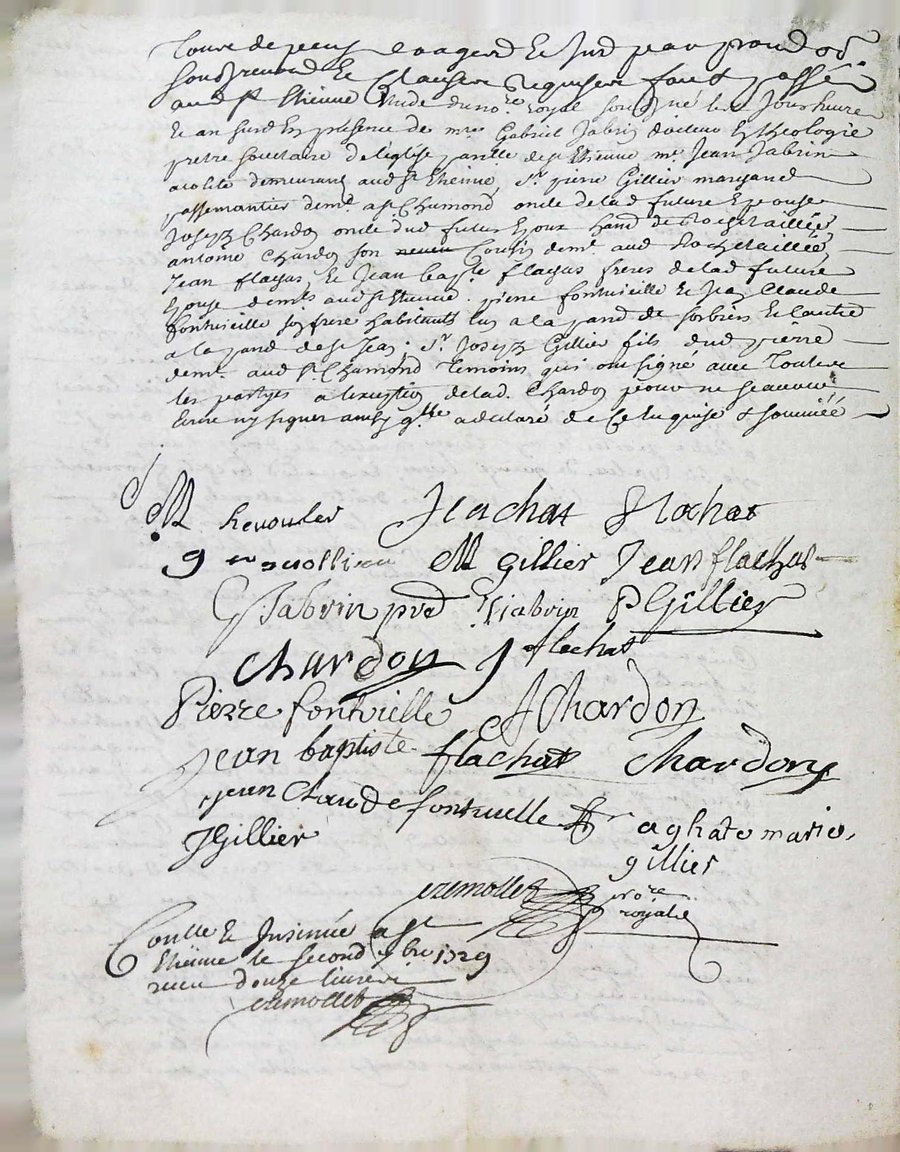 et
soubs renonce et clauses requises fait et passé
aud St Etienne étude du nore royal soussigné les jour heure
et an susd en présence de mre Gabriel Jabrin docteur en theologie
pretre societaire de leglise par.lle de St Etienne mr Jean Jabrin
acolite demeurant aud St Etienne, Sr pierre Gillier marchand
passemantier demt a St Chamond oncle de lad future epouse
Joseph Chardon oncle dud futur epoux hant de Rochetaillée
antoine Chardon son neveu Cousin demt aud Rochetaillée
Jean flachas et Jean bapte flachas freres de lad future
epouse demts aud St Etienne. pierre fontvieille et Jean Claude
fontvieille son frere habitants lun a la parr de sorbiers et lautre
a la parr de St Jean, Sr Joseph Gillier fils dud pierre
demt aud St Chamond temoins qui ont signé avec toutes
les partyes a lexception de lad. Chardon pour ne scavoir
ecrire ny signer ainsy qlle a declaré de ce requise et sommée
M flachat flachat
M gillier Jean flachat
G Jabrin pre J jabrin P Gillier
Chardon J flachat
Pierre fontvielle A Chardon
jean baptiste flachat Chardon
jean Claude fontvielle aghate marie
JGillier gillier
royale
Conlle et Insinué a St
Etienne le second 9bre 1729
receu douze livres